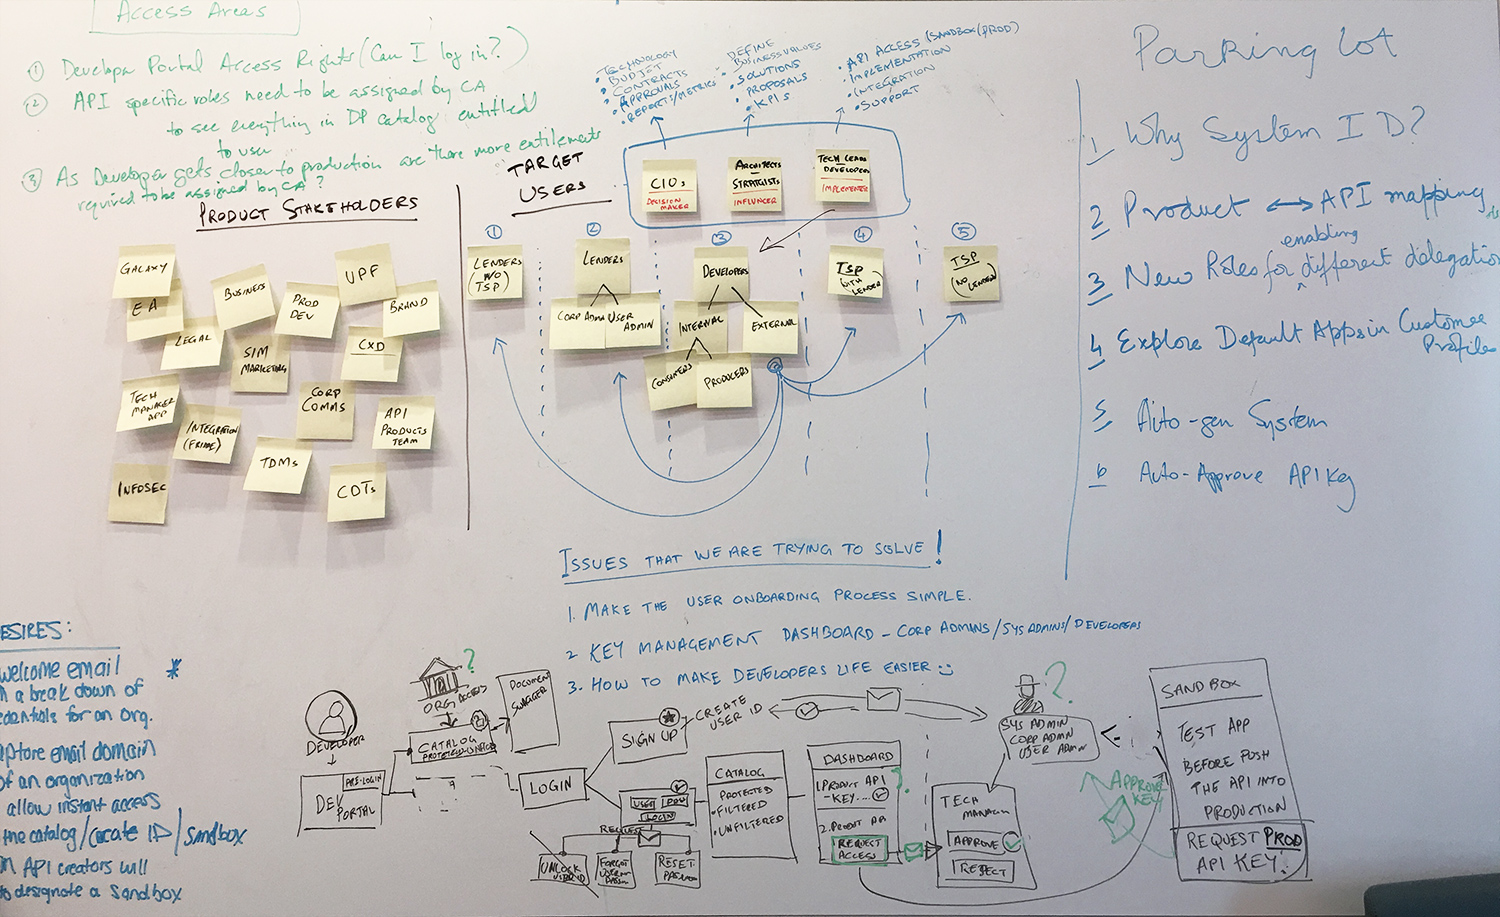 Access Areas
① Developer Portal Access Rights (Can I log in?)
② API specific roles need to be assigned by CA
to see everything in DP catalog entitled
to user
③ As Developer gets closer to production are there more entitlements
required to be assigned by CA?
PRODUCT STAKEHOLDERS
GALAXY
EA
BUSINESS
PROD
DEV
UPF
BRAND
LEGAL
SIM
MARKETING
CXD
TECH
MANAGER
APP
INTEGRATION
CORP
COMMS
API
PRODUCTS
TEAM
TDMs
INFOSEC
COTs
TARGET
USERS
• TECHNOLOGY
• BUDJET
• CONTRACTS
• APPROVALS
• REPORTS/METRICS
• DEFINE
BUSINESS VALUES
• SOLUTIONS
• PROPOSALS
• KPIS
• API ACCESS (SANDBOX/PROD)
• IMPLEMENTATION
• INTEGRATION
• SUPPORT
CIOs
DECISION
MAKER
ARCHITECTS
STRATGISTS
INFLUNCER
TECH LEADS
DEVELOPERS
IMPLEMENTER
①
LENDERS
W/O
TSP)
②
LENDERS
CORP ADMIN
USER
ADMIN
③
DEVELOPERS
INTERNAL
EXTERNAL
CONSUMERS
PRODUCERS
④
TSP
(WITH
LENDER)
⑤
TSP
(NO LENDER)
Parking lot
1 Why System ID?
2 Product ↔ API mapping
3 New Roles for enabling different delegation
4 Explore Default Apps in Customer
Profiles
5 Auto-gen System
6 Auto-Approve API Key
ISSUES THAT WE ARE TRYING TO SOLVE!
1. MAKE THE USER ONBOARDING PROCESS SIMPLE.
2 KEY MANAGEMENT DASHBOARD - CORP ADMINS/SYS ADMINS/DEVELOPERS
3. HOW TO MAKE DEVELOPERS LIFE EASIER
ESIRES:
welcome email *
a break down of
dentials for an org.
pture email domain
of an organization
allow instant access
the catalog/create ID/sandbox
API creators will
to designate a Sandbox
DEVELOPER
PRE-LOGIN
DEV
PORTAL
?
ORG ACCESS
CATALOG
DOCUMENT
SWAGGER
?
LOGIN
SIGN UP
CREATE
USER ID
USER
LOGIN
REQUEST
UNLOCK
USER ID
FORGOT
RESET
CATALOG
PROTECTED
• FILTERED
• UNFILTERED
DASHBOARD
1. PRODUCT API
- KEY....
?
2. PRODUCT API
REQUEST
ACCESS
?
SYS ADMIN
CORP ADMIN
USER ADMIN
TECH
MANAGER
APPROVE
REJECT
APPROVE
KEY
SANDBOX
TEST APP
BEFORE PUSH
THE API INTO
PRODUCTION
REQUEST PROD
API KEY!